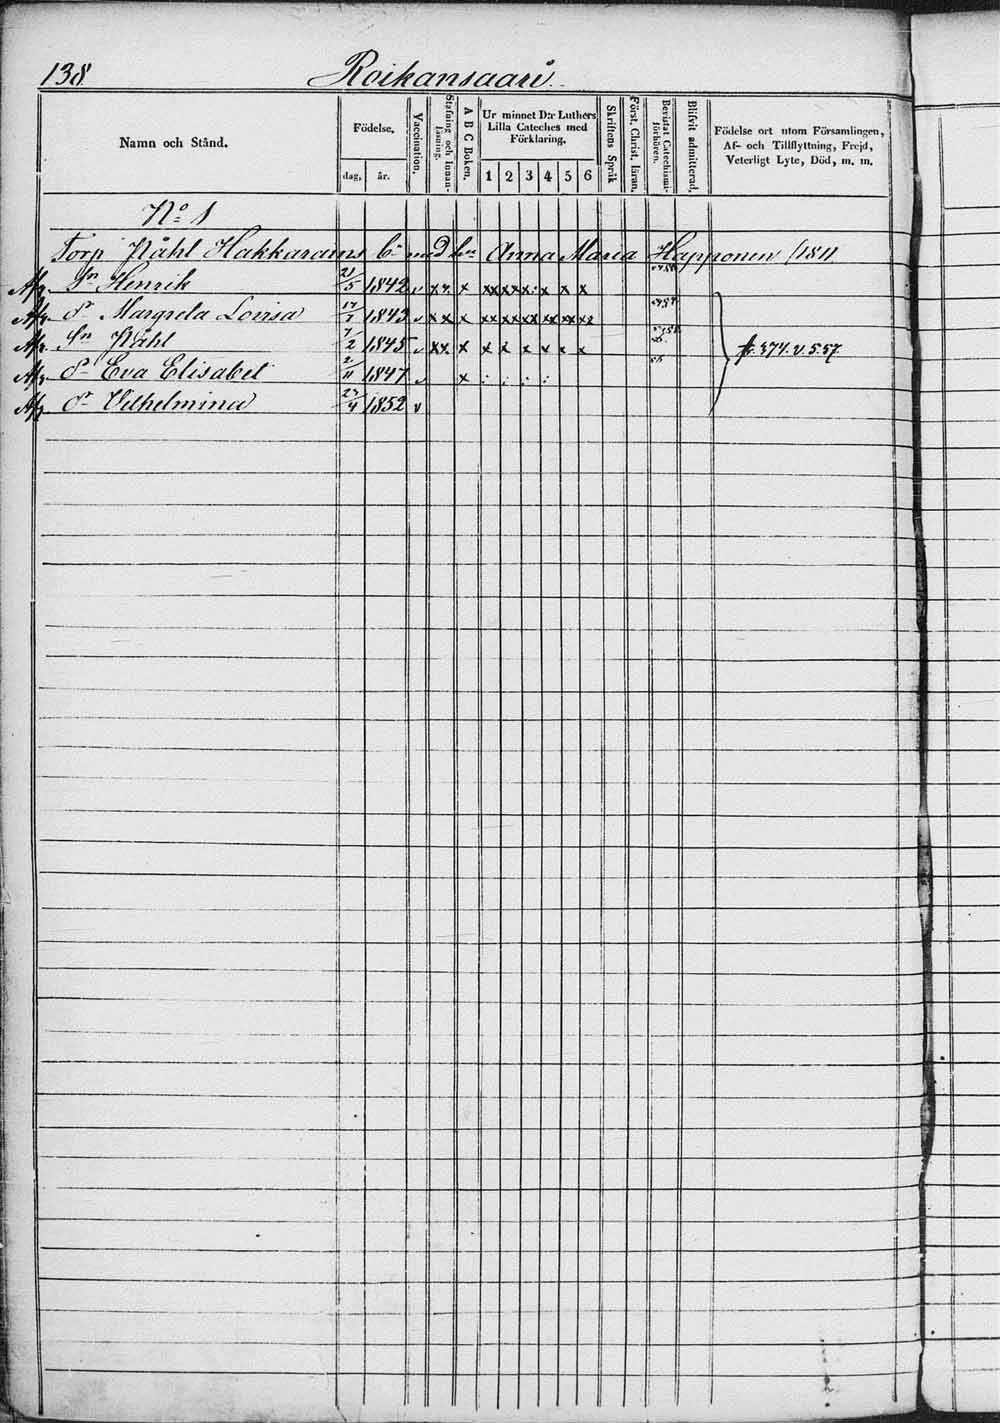 138 Roikansaari
Namn och Stånd.
Födelse.
dag, år.
Vaccination.
Stafning och Innanläsning.
A B C Boken.
Ur minnet D:r Luthers
Lilla Cateches med
Förklaring.
1 2 3 4 5 6
Skriftens Språk
Först. Christ. läran.
Bevistat Catechismiförhören.
Blifvit admitterad.
Födelse ort utom Församlingen,
Af- och Tillflyttning, Frejd,
Veterligt Lyte, Död, m. m.
No 1
Torp Påhl Hakkarains bn med hu Anna Maria Happonen /1811
Sn Henrik 21/5 1842 v xx x xx xxx x x x
dr Margreta Lovisa 17/7 1843 v xx x xx xx xx xx xx xx
Sn Påhl 7/2 1845 v xx x x x x x x x
dr Eva Elisabet 2/11 1847 v x : : : :
dr Vilhelmina 23/4 1852 v
p. 374. v. 5.57